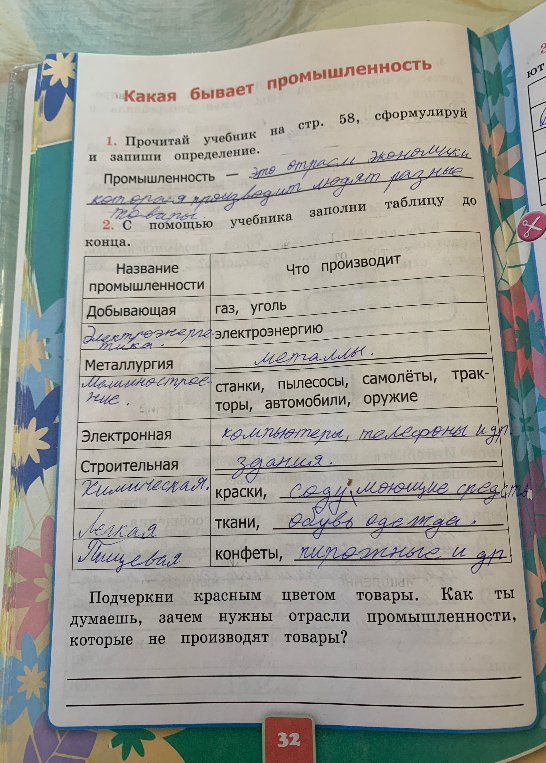 Какая бывает промышленность
1. Прочитай учебник на стр. 58, сформулируй
и запиши определение.
Промышленность — это отрасли экономики
которая производит людям разные
товары
2. С помощью учебника заполни таблицу до
конца.
Название промышленности Что производит
Добывающая газ, уголь
Электроэнерге-
тика. электроэнергию
Металлургия металлы.
Машинострое-
ние. станки, пылесосы, самолёты, трак-
торы, автомобили, оружие
Электронная компьютеры, телефоны и др.
Строительная здания.
Химическая. краски, соду, моющие средств
Легкая ткани, обувь одежда.
Пищевая конфеты, пирожные и др
Подчеркни красным цветом товары. Как ты
думаешь, зачем нужны отрасли промышленности,
которые не производят товары?
32
ют